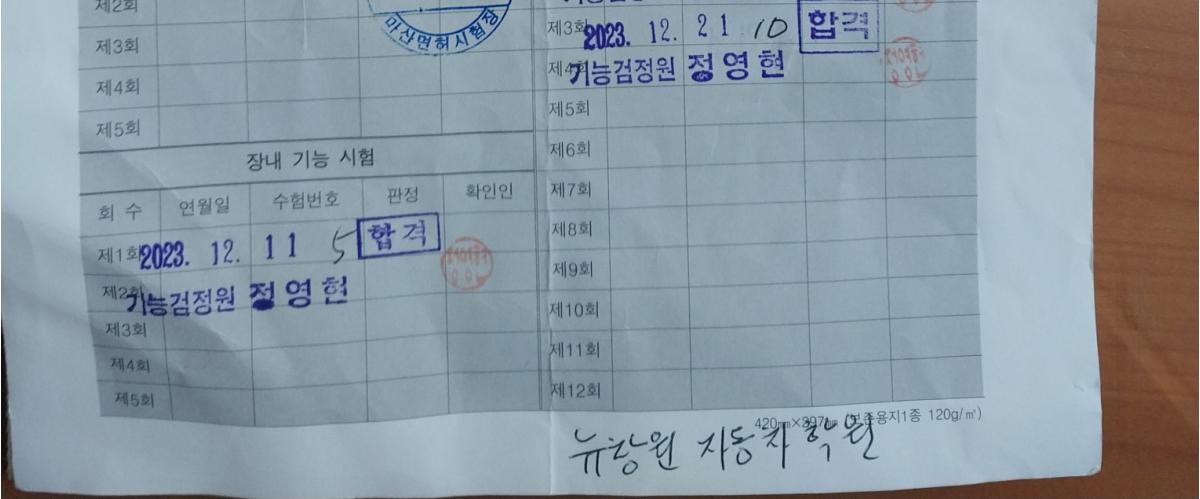 제2회
제3회
제4회
제5회
마산면허시험장
장내 기능 시험
회 수 연월일 수험번호 판정 확인인
제1회 2023. 12. 11 5 합격
제2회
기능검정원 정영현
제3회
제4회
제5회
제3회 2023. 12. 21 10 합격
제4회
기능검정원 정영현
제5회
제6회
제7회
제8회
제9회
제10회
제11회
제12회
420㎜×297㎜ (보존용지1종 120g/㎡)
뉴창원 자동차학원